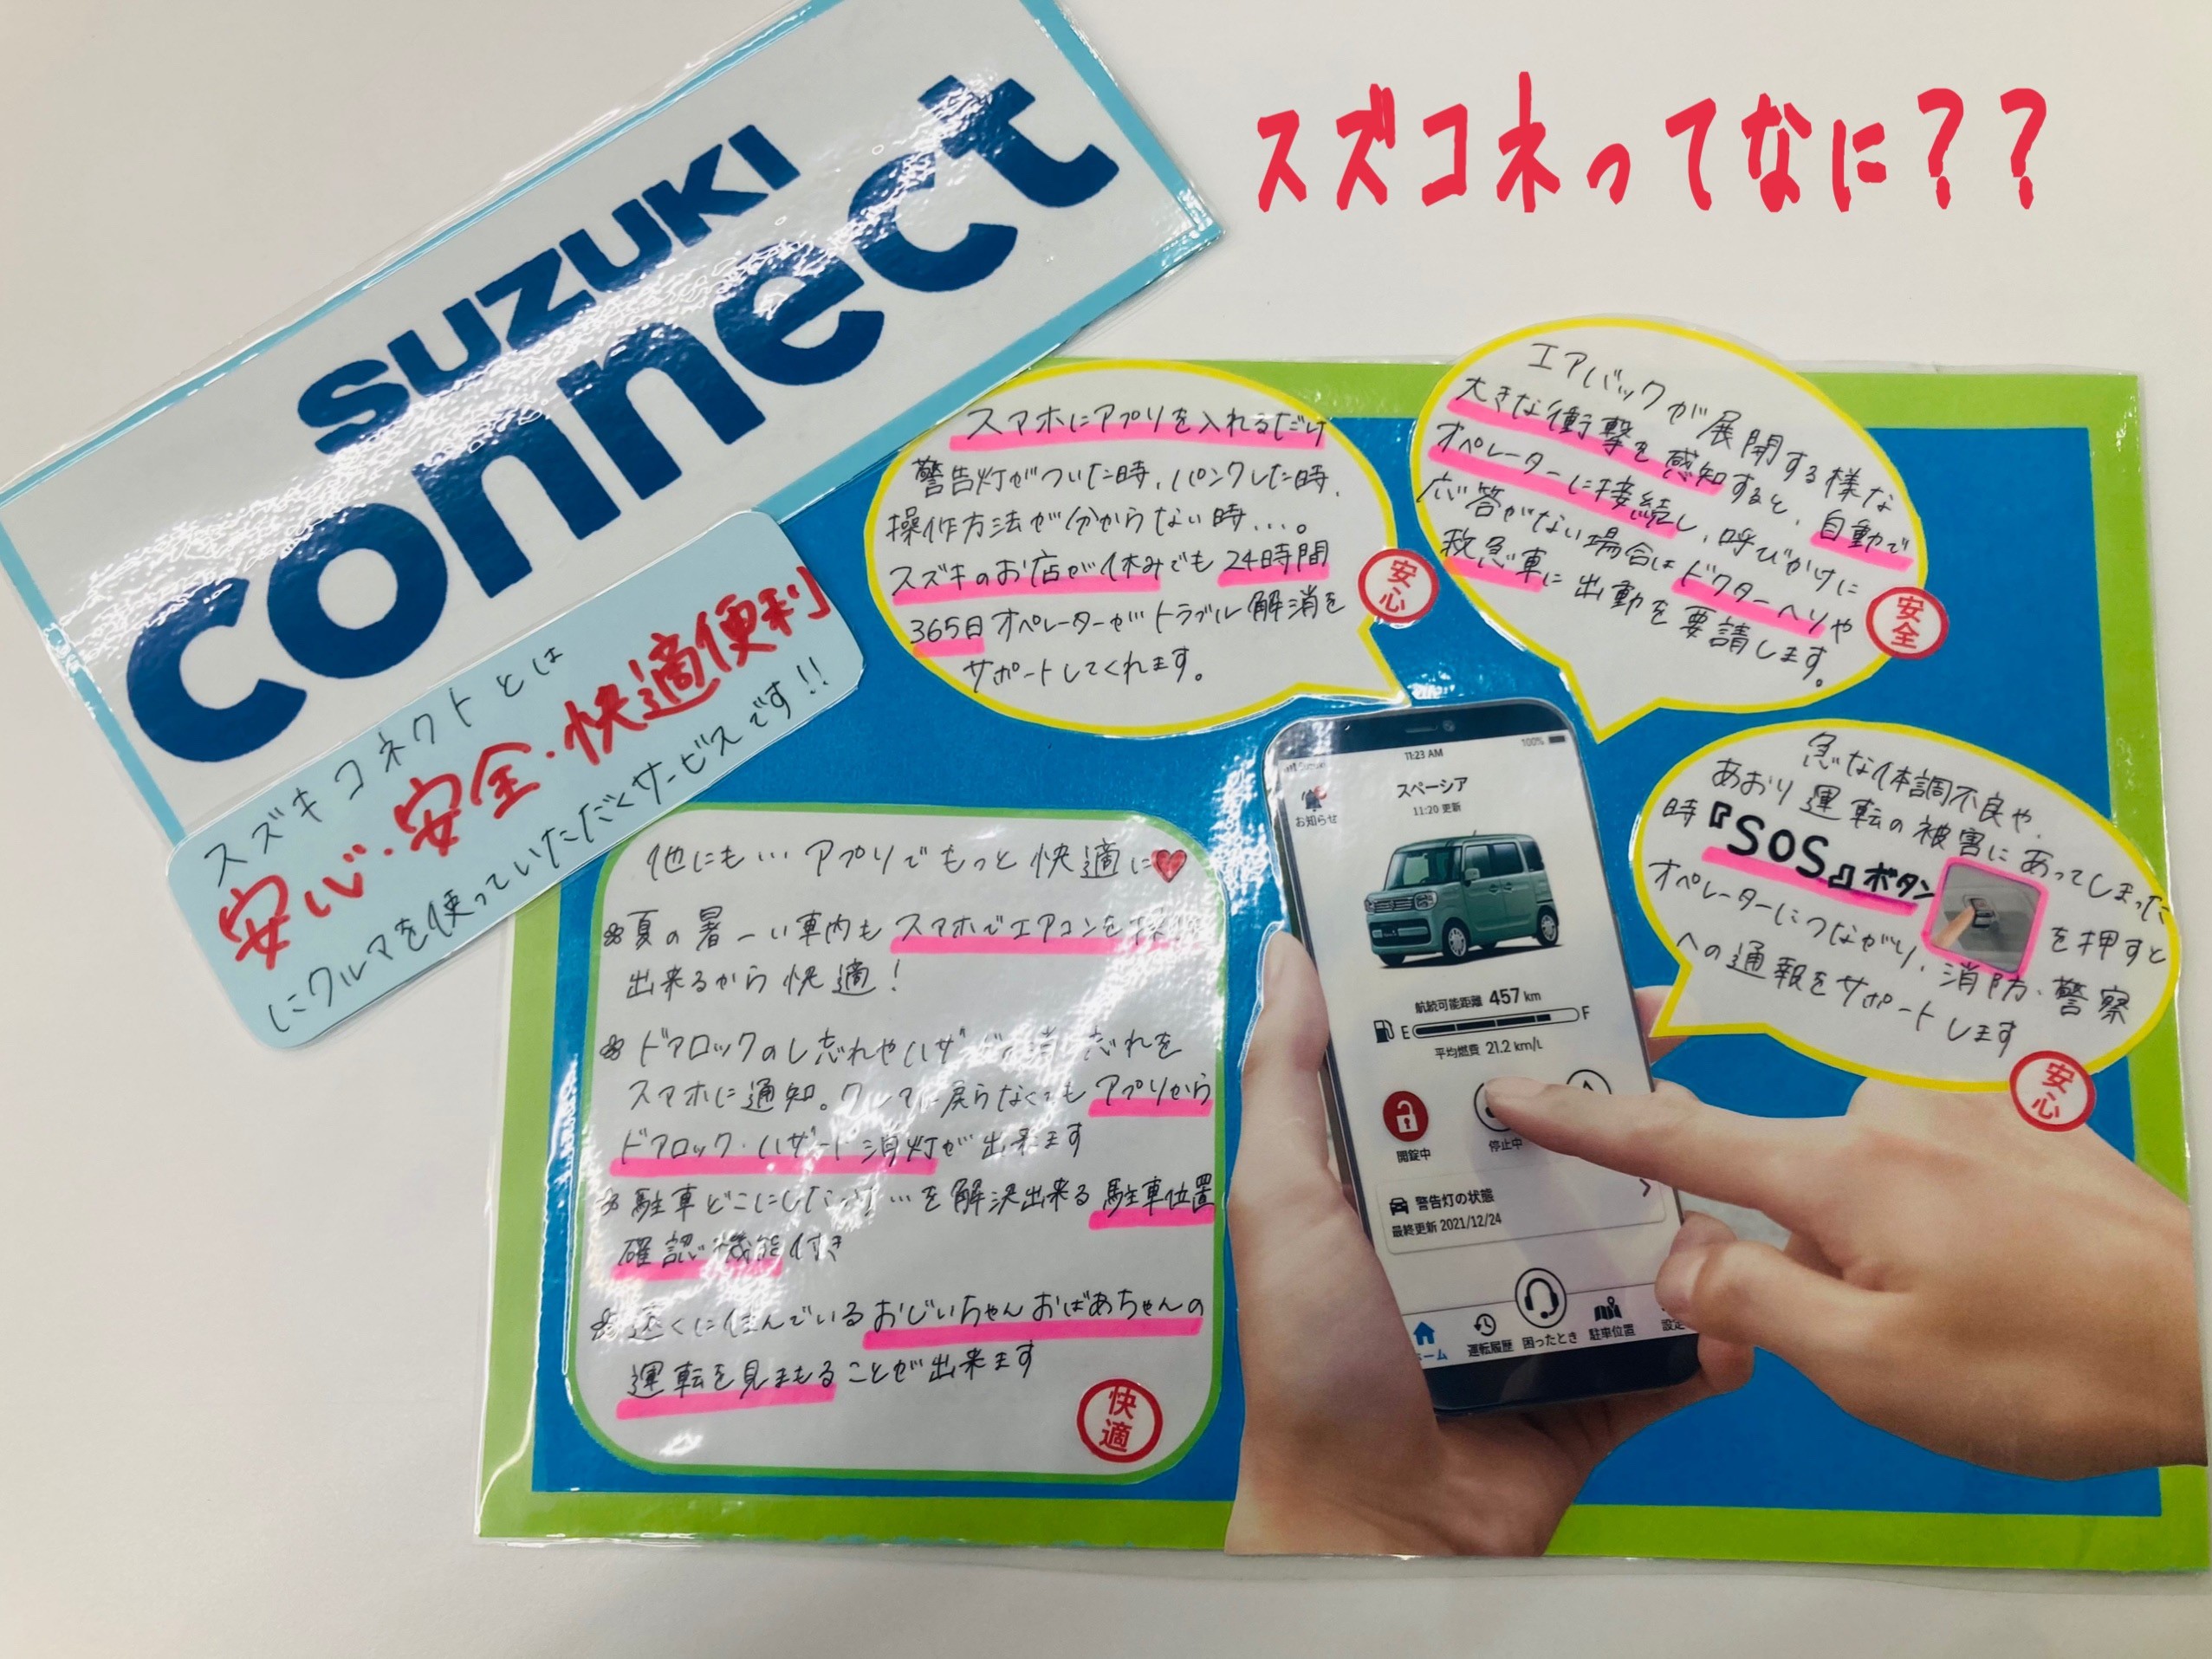 スズコネってなに??
SUZUKI
connect
スズキコネクトとは
安心・安全・快適便利
にクルマを使っていただくサービスです!!
スマホにアプリを入れるだけ
警告灯がついた時、パンクした時、
操作方法が分からない時…。
スズキのお店が休みでも24時間
365日オペレーターがトラブル解消を
サポートしてくれます。
安心
エアバックが展開する様な
大きな衝撃を感知すると、自動で
オペレーターに接続し、呼びかけに
応答がない場合はドクターヘリや
救急車に出動を要請します。
安全
急な体調不良や、
あおり運転の被害にあってしまった
時『SOS』ボタン を押すと
オペレーターにつながり、消防、警察
への通報をサポートします
安心
他にも…アプリでもっと快適に♥
夏の暑ーい車内もスマホでエアコンを操作
出来るから快適!
ドアロックのし忘れやハザードの消し忘れを
スマホに通知。クルマに戻らなくてもアプリから
ドアロック・ハザード消灯が出来ます
駐車どこにしたっけ…を解決出来る駐車位置
確認機能付き
遠くに住んでいるおじいちゃんおばあちゃんの
運転を見まもることが出来ます
快適
11:23 AM
100%
お知らせ
スペーシア
11:20 更新
航続可能距離 457 km
E F
平均燃費 21.2 km/L
開錠中
停止中
警告灯の状態
最終更新 2021/12/24
ホーム
運転履歴
困ったとき
駐車位置
設定